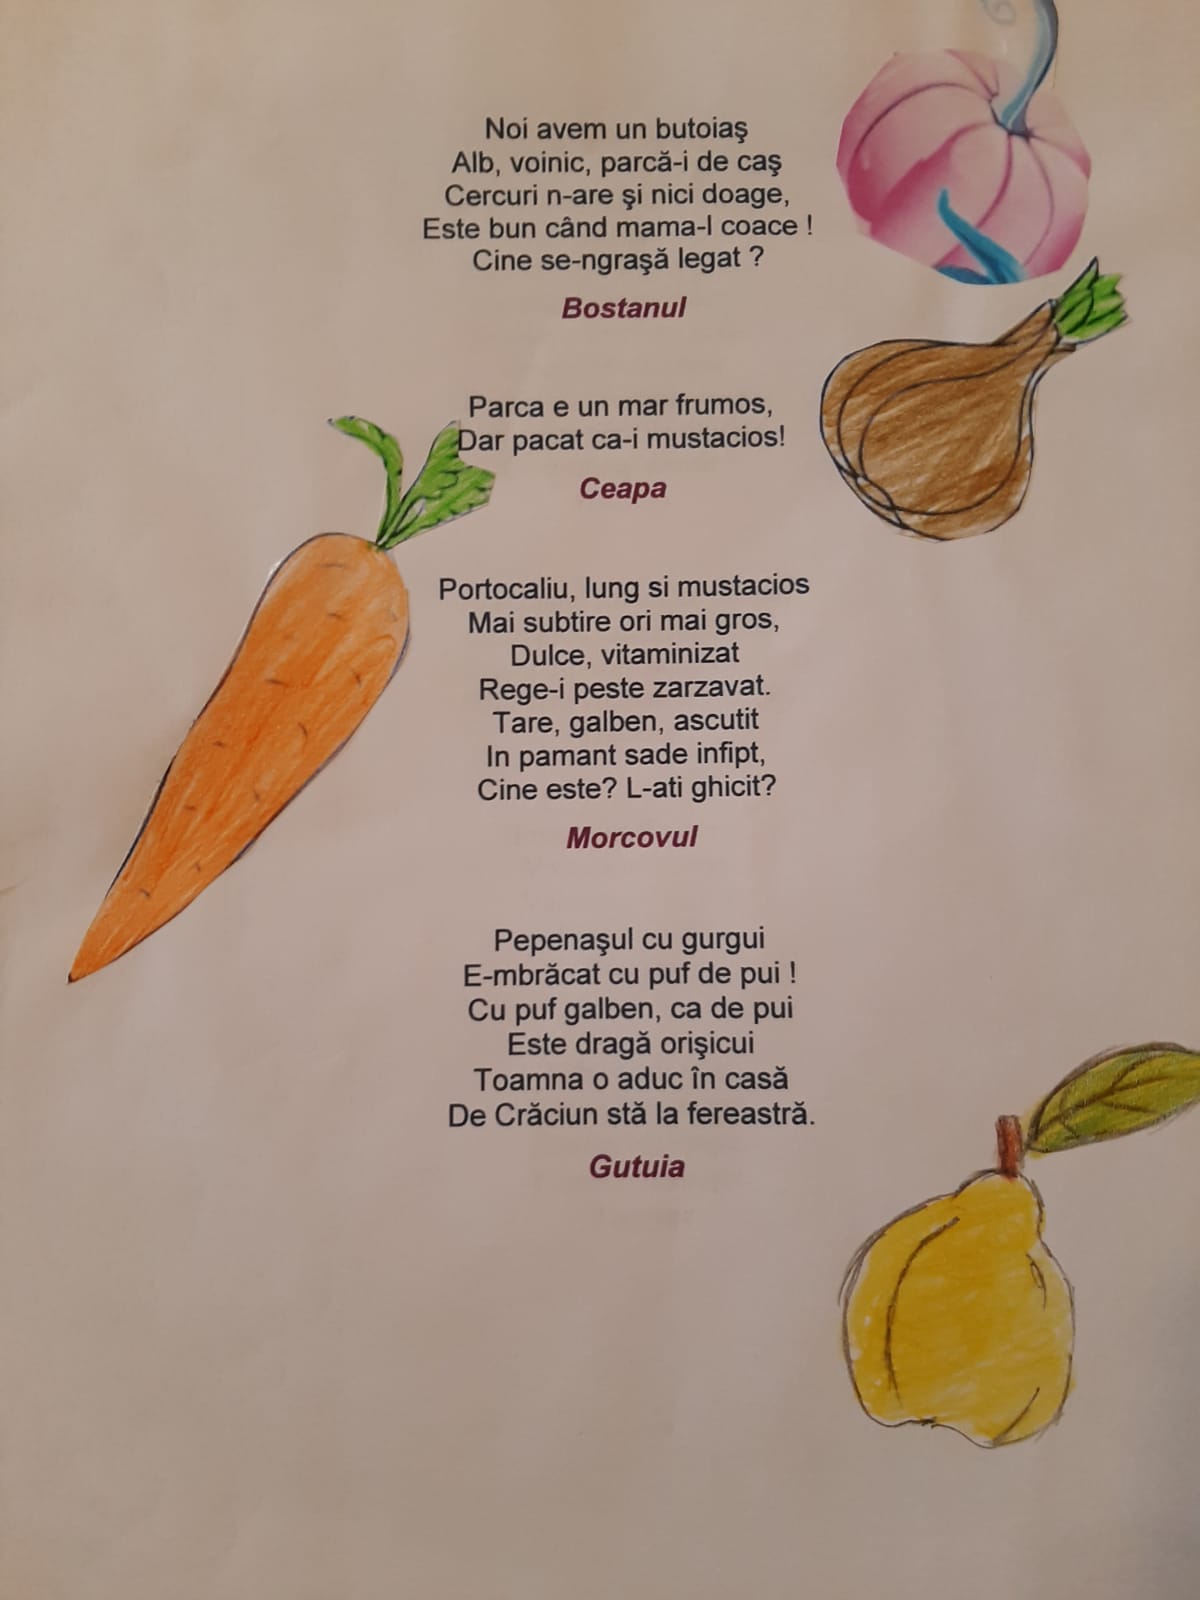 Noi avem un butoiaş
Alb, voinic, parcă-i de caş
Cercuri n-are şi nici doage,
Este bun când mama-l coace !
Cine se-ngraşă legat ?
Bostanul
Parca e un mar frumos,
Dar pacat ca-i mustacios!
Ceapa
Portocaliu, lung si mustacios
Mai subtire ori mai gros,
Dulce, vitaminizat
Rege-i peste zarzavat.
Tare, galben, ascutit
In pamant sade infipt,
Cine este? L-ati ghicit?
Morcovul
Pepenaşul cu gurgui
E-mbrăcat cu puf de pui !
Cu puf galben, ca de pui
Este dragă orişicui
Toamna o aduc în casă
De Crăciun stă la fereastră.
Gutuia